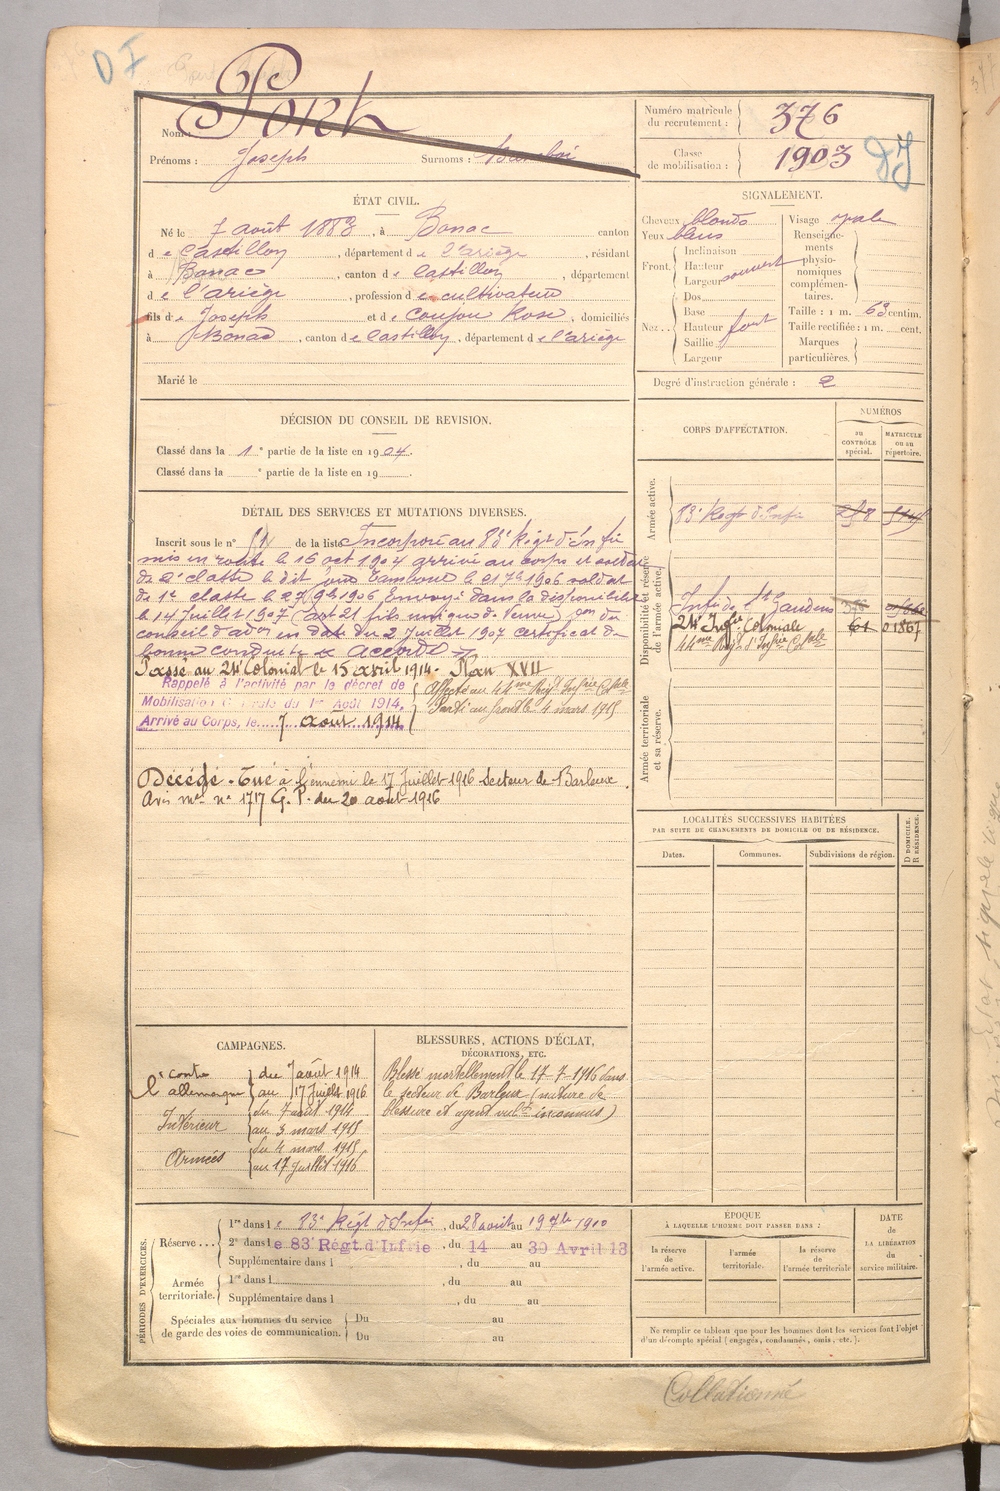 DF
Nom : Pont
Prénoms : Joseph Surnoms :
Numéro matricule du recrutement : 376
Classe de mobilisation : 1903
DF
ÉTAT CIVIL.
Né le 7 août 1883, à Bonac canton
de Castillon, département de l'ariège, résidant
à Bonac, canton de Castillon, département
de l'ariège, profession de cultivateur
fils de Joseph et de Coujou Rose, domiciliés
à Bonac, canton de Castillon, département de l'ariège
Marié le
SIGNALEMENT.
Cheveux blonds
Yeux bleus
Front. Inclinaison
Hauteur
Largeur
Nez... Dos
Base
Hauteur fort
Saillie
Largeur
Visage ovale
Renseignements physionomiques complémentaires.
Taille : 1 m. 63 centim.
Taille rectifiée : 1 m. cent.
Marques particulières.
Degré d'instruction générale : 2
DÉCISION DU CONSEIL DE REVISION.
Classé dans la 1e partie de la liste en 1904.
Classé dans la e partie de la liste en 19
DÉTAIL DES SERVICES ET MUTATIONS DIVERSES.
Inscrit sous le n° de la liste Incorporé au 83e Régt d'Infie
mis en route le 16 oct 1904 arrivé au corps et soldat
de 2e classe le dit jour Tambour le 21 7bre 1906 soldat
de 1re classe le 27 9bre 1906 Envoyé dans la disponibilité
le 14 Juillet 1907 (art 21 fils unique de Veuve) con du
conseil d'adon en date du 2 Juillet 1907 certificat de
bonne conduite « accordé »
Passé au 24e Colonial le 15 avril 1914. Plan XVII
Rappelé à l'activité par le décret de
Mobilisation Générale du 1er Août 1914.
Arrivé au Corps, le 7 août 1914
Affecté au 44me Régt Infrie Clale
Parti au front le 4 mars 1915
Décédé - Tué à l'ennemi le 17 Juillet 1916 Secteur de Barleux
Avis mel n° 1717 G. P. du 20 août 1916
CORPS D'AFFECTATION.
NUMÉROS
au CONTRÔLE spécial.
MATRICULE ou au répertoire.
Armée active.
83e Régt d'Infie
Disponibilité et réserve de l'armée active.
Infie de St Gaudens
24e Infie Coloniale 61 01867
44me Régt d'Infie Clale
Armée territoriale et sa réserve.
LOCALITÉS SUCCESSIVES HABITÉES
PAR SUITE DE CHANGEMENTS DE DOMICILE OU DE RÉSIDENCE.
Dates. Communes. Subdivisions de région.
D DOMICILE. R RÉSIDENCE.
CAMPAGNES.
Ccontre l'allemagne du 7 août 1914
au 17 Juillet 1916
Intérieur du 7 août 1914
au 3 mars 1915
Armées du 4 mars 1915
au 17 Juillet 1916
BLESSURES, ACTIONS D'ÉCLAT,
DÉCORATIONS, ETC.
Blessé mortellement le 17-7-1916 dans
le secteur de Barleux (nature de
blessure et agent vulnt inconnus)
PÉRIODES D'EXERCICES.
Réserve... 1re dans le 83e Régt d'Infie, du 28 août au 19 7bre 1910
2e dans le 83e Régt.d'Infrie, du 14 au 30 Avril 13
Supplémentaire dans l , du au
Armée territoriale. 1re dans l , du au
Supplémentaire dans l , du au
Spéciales aux hommes du service de garde des voies de communication. Du au
Du au
ÉPOQUE
À LAQUELLE L'HOMME DOIT PASSER DANS :
la réserve de l'armée active.
l'armée territoriale.
la réserve de l'armée territoriale
DATE de LA LIBÉRATION du service militaire.
Ne remplir ce tableau que pour les hommes dont les services font l'objet
d'un décompte spécial (engagés, condamnés, omis, etc.).
Collationné